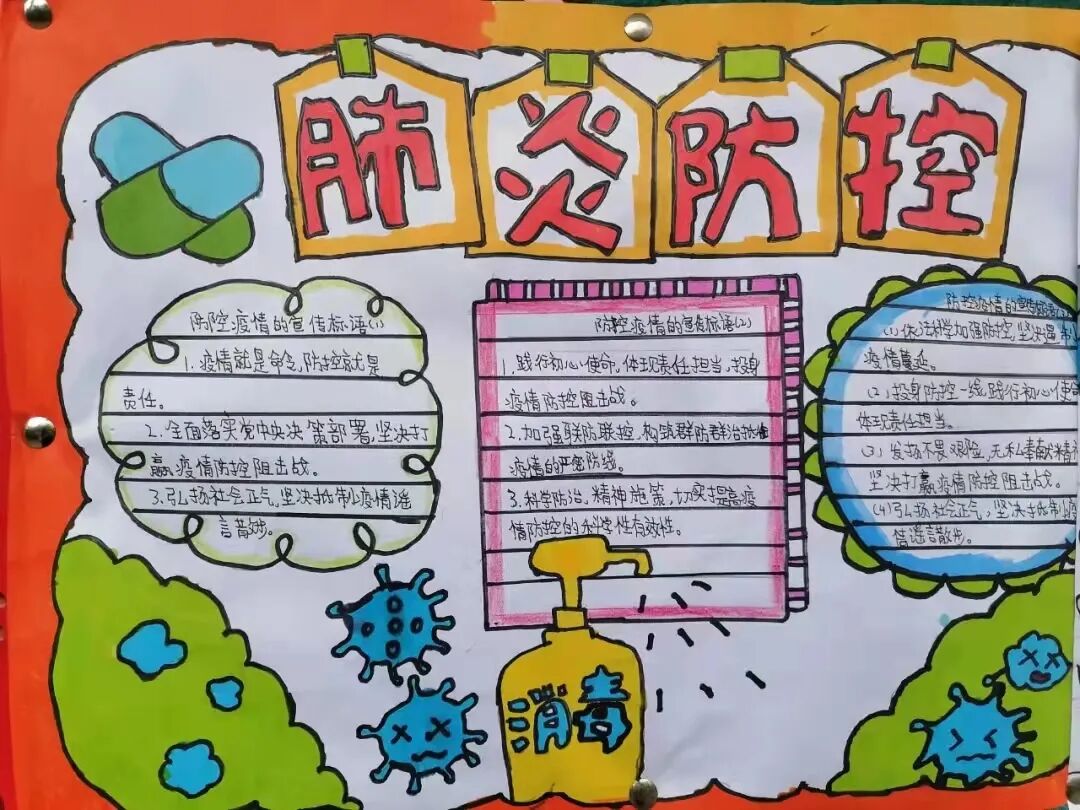 肺炎防控
防控疫情的宣传标语(1)
1.疫情就是命令,防控就是
责任。
2.全面落实党中央决策部署,坚决打
赢疫情防控阻击战。
3.弘扬社会正气,坚决抵制疫情谣
言散步。
防控疫情的宣传标语(2)
1.践行初心使命,体现责任担当,投身
疫情防控阻击战。
2.加强联防联控,构筑群防群治抵御
疫情的严密防线。
3.科学防治,精神施策,切实提高疫
情防控的科学性有效性。
防控疫情的宣传标语
(1)依法科学加强防控,坚决遏制
疫情蔓延。
(2)投身防控一线,践行初心使命
体现责任担当。
(3)发扬不畏艰险,无私奉献精神
坚决打赢疫情防控阻击战。
(4)弘扬社会正气,坚决抵制疫
情谣言散步。
消毒